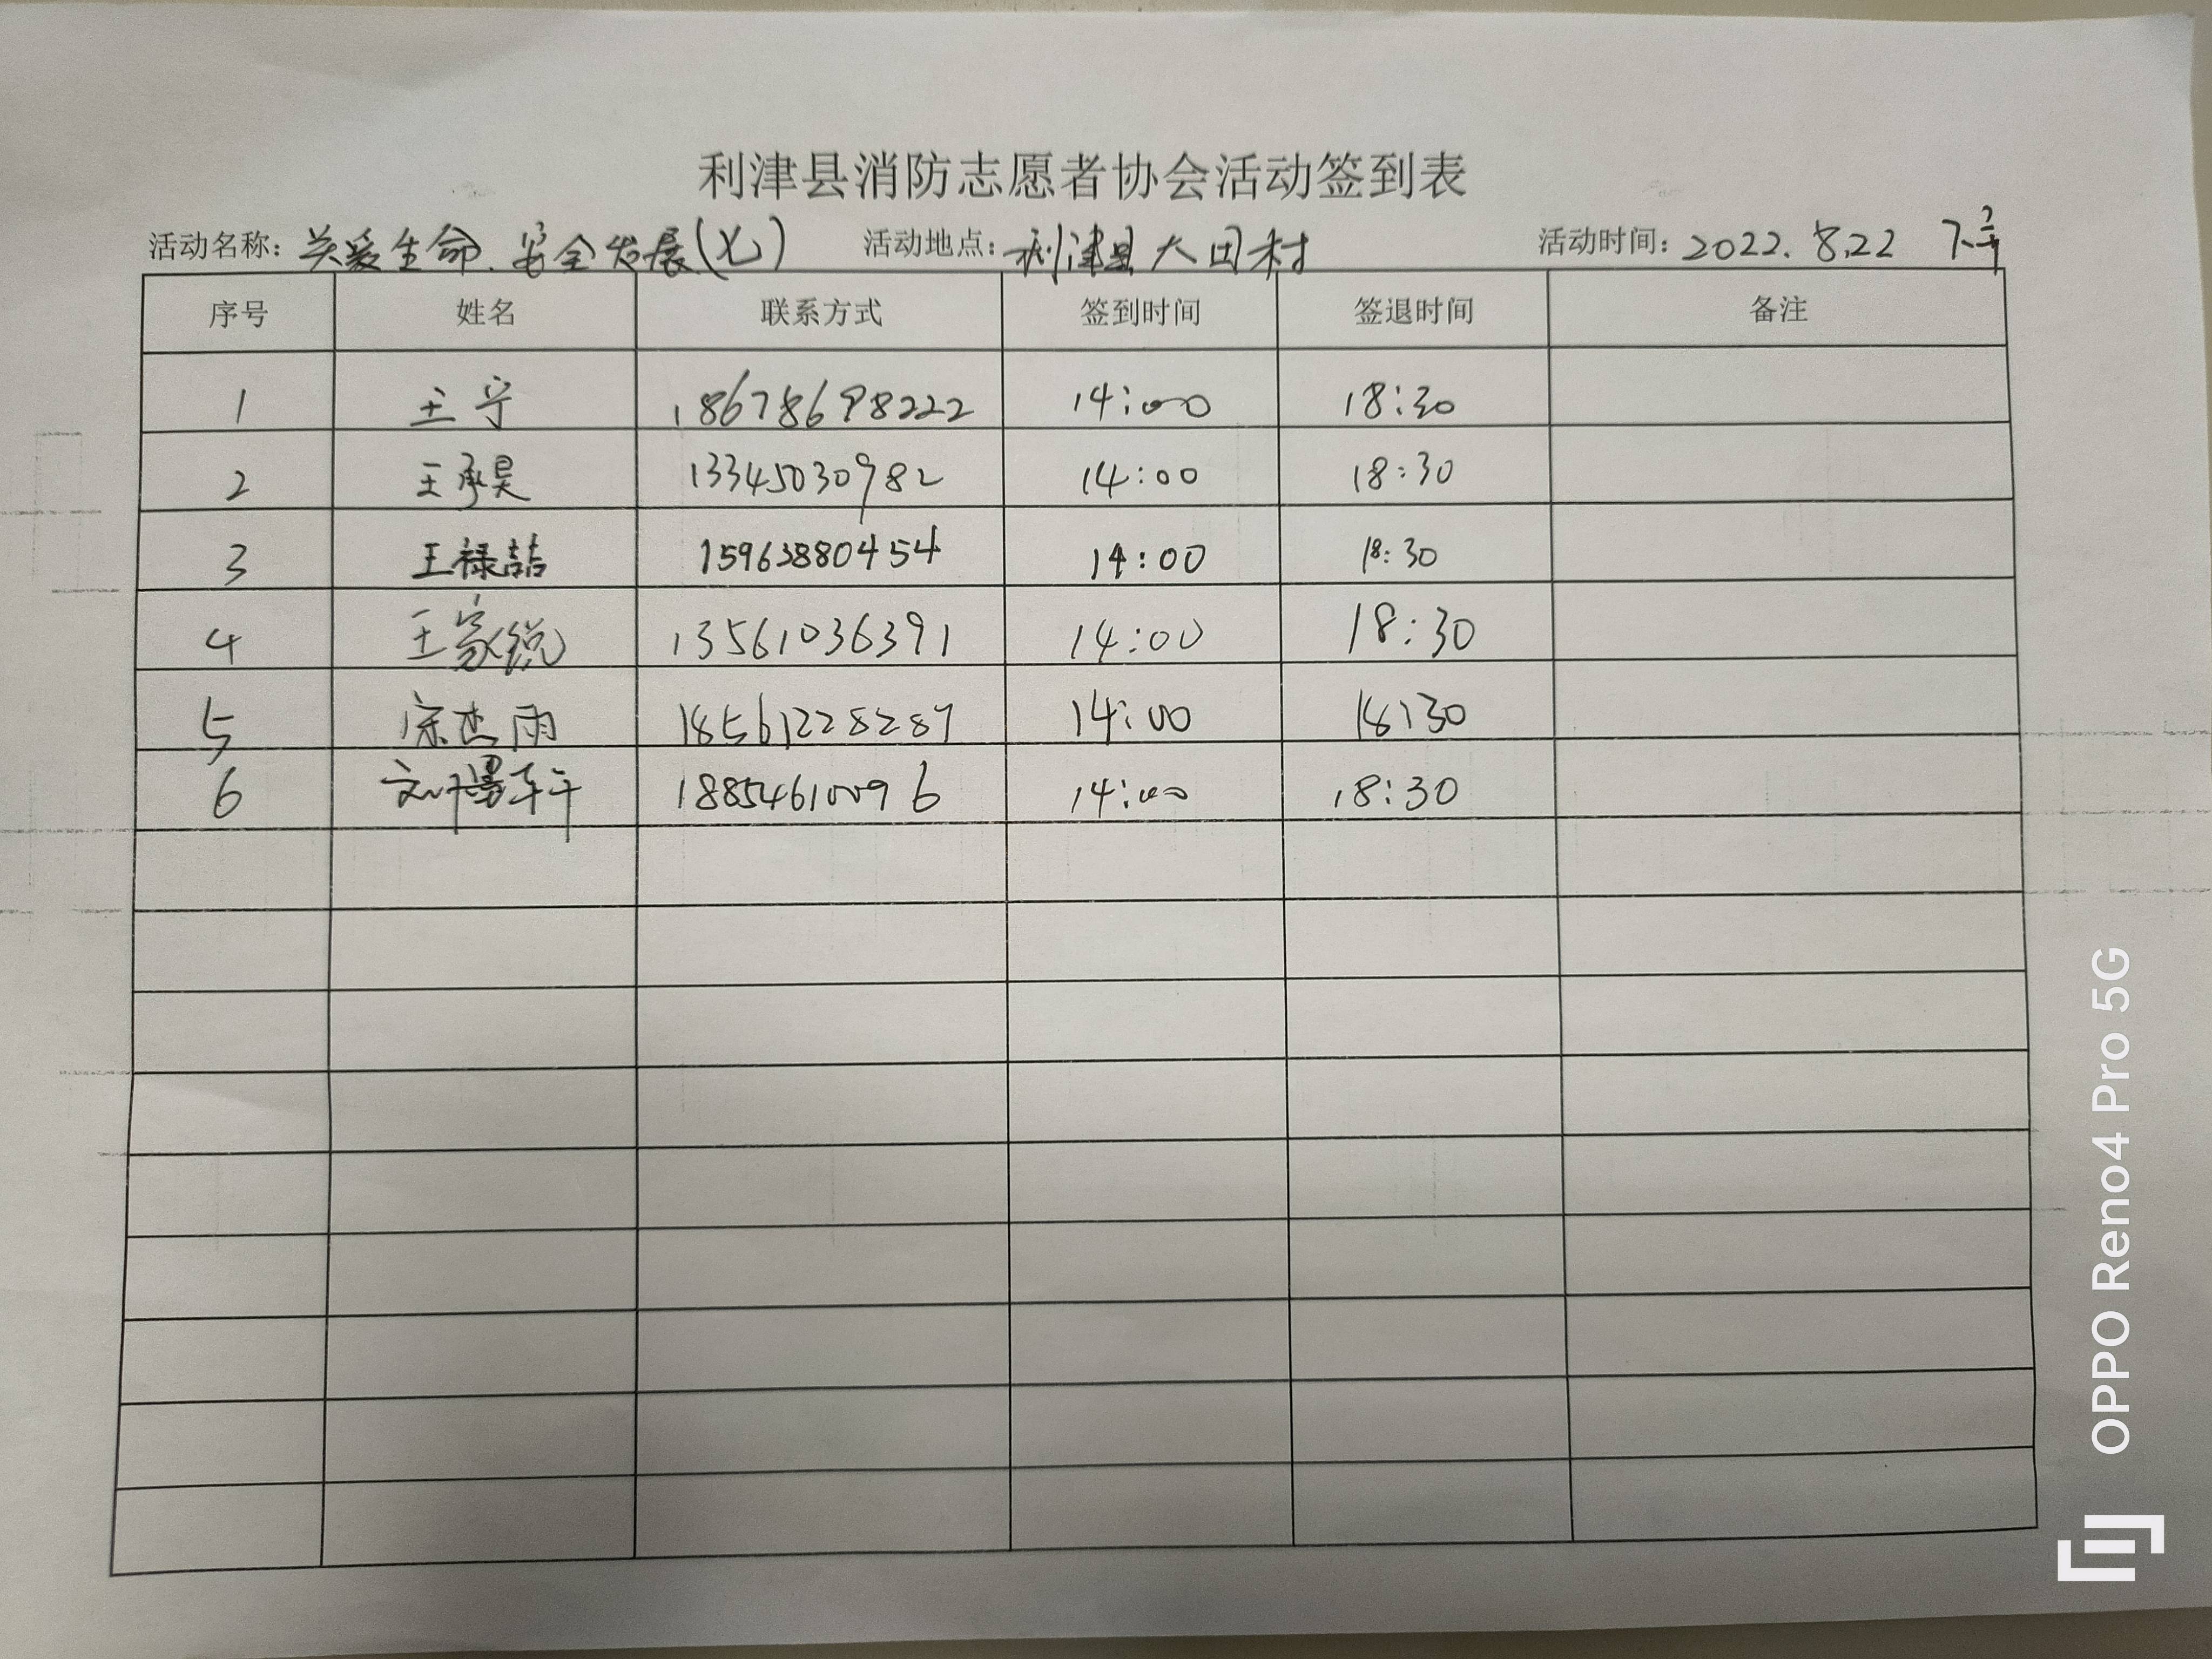 利津县消防志愿者协会活动签到表
活动名称: 关爱生命、安全发展(七) 活动地点: 利津县大田村 活动时间: 2022.8.22 下午
序号 姓名 联系方式 签到时间 签退时间 备注
1 王宁 18678698222 14:00 18:30
2 王承昊 13345030982 14:00 18:30
3 王禄喆 15963880454 14:00 18:30
4 王家锐 13561036391 14:00 18:30
5 宋杰雨 18561228287 14:00 18:30
6 18854610096 14:00 18:30
OPPO Reno4 Pro 5G